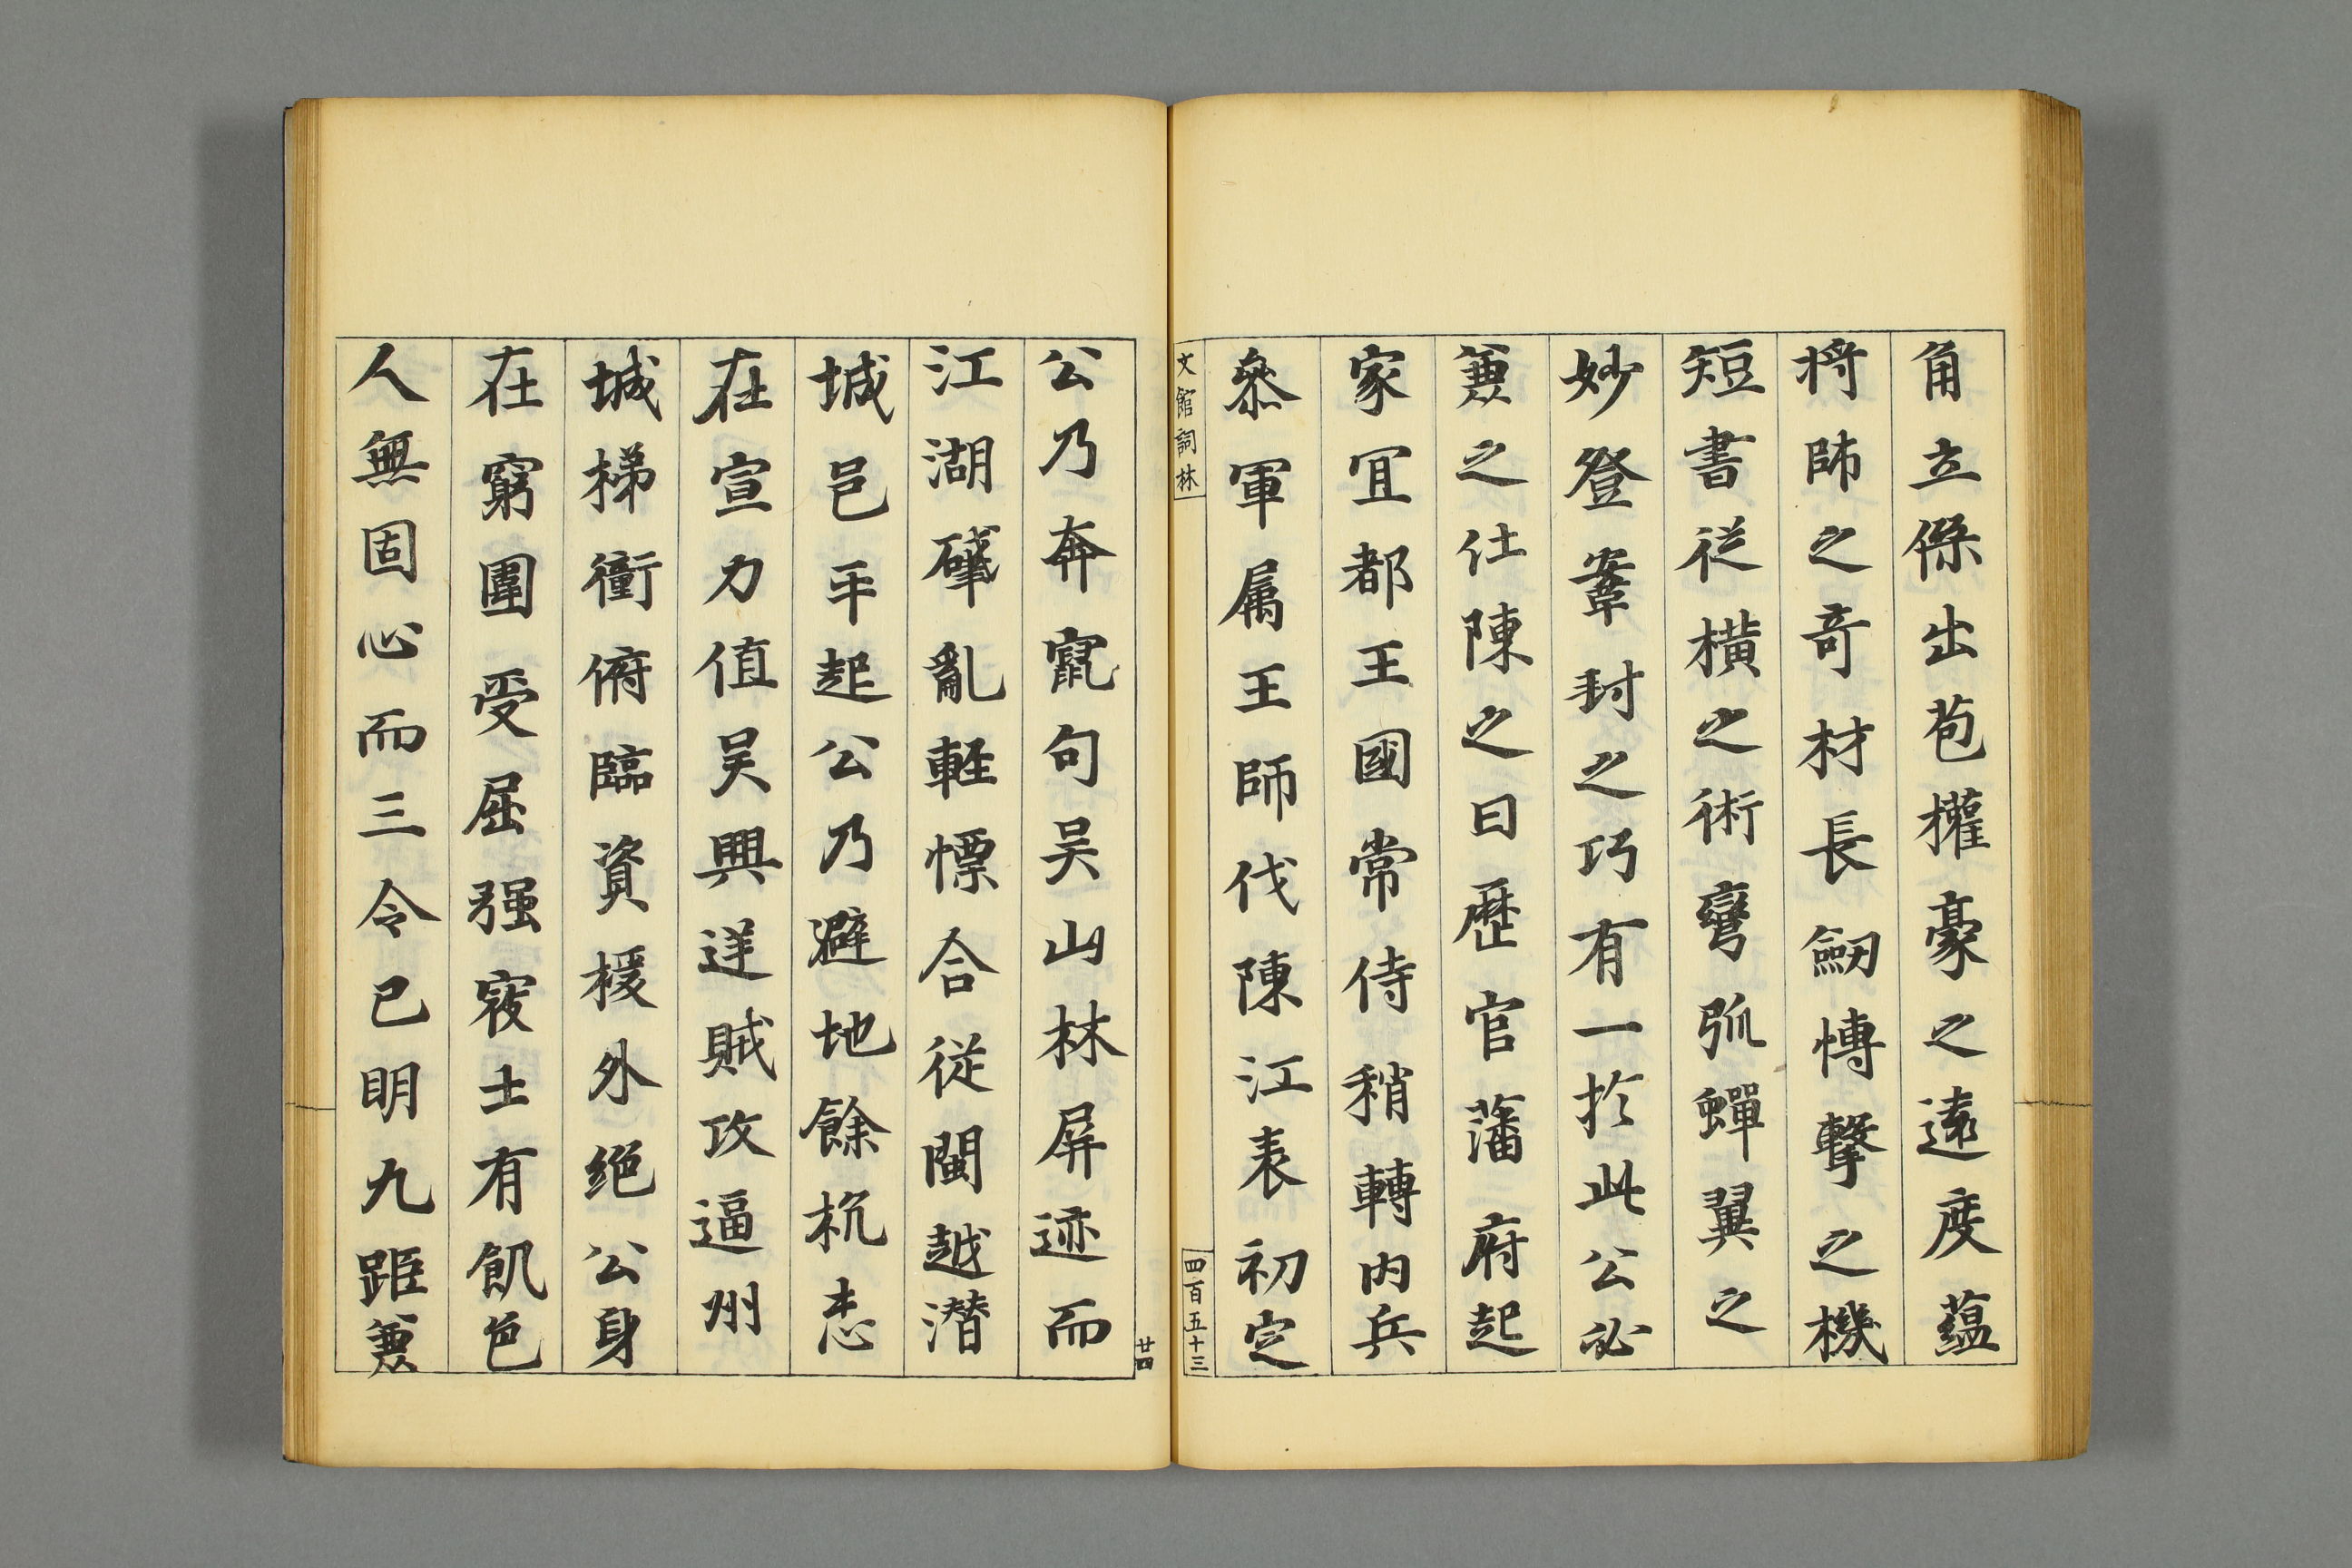 角立傑出苞權豪之遠度蘊
將帥之奇材長劔慱擊之機
短書從橫之術彎弧蟬翼之
妙登輂封之巧有一於此公必
兼之仕陳之日歷官藩府起
家宜都王國常侍稍轉內兵
叅軍属王師伐陳江表初定
文館詞林
四百五十三
廿四
公乃奔竄句吴山林屏迹而
江湖肈亂輕慓合從閩越潛
城邑平起公乃避地餘杭志
在宣力值吴興逆賊攻逼州
城梯衝俯臨資援外絕公身
在窮圍受屈强寇士有飢色
人無固心而三令已明九距兼